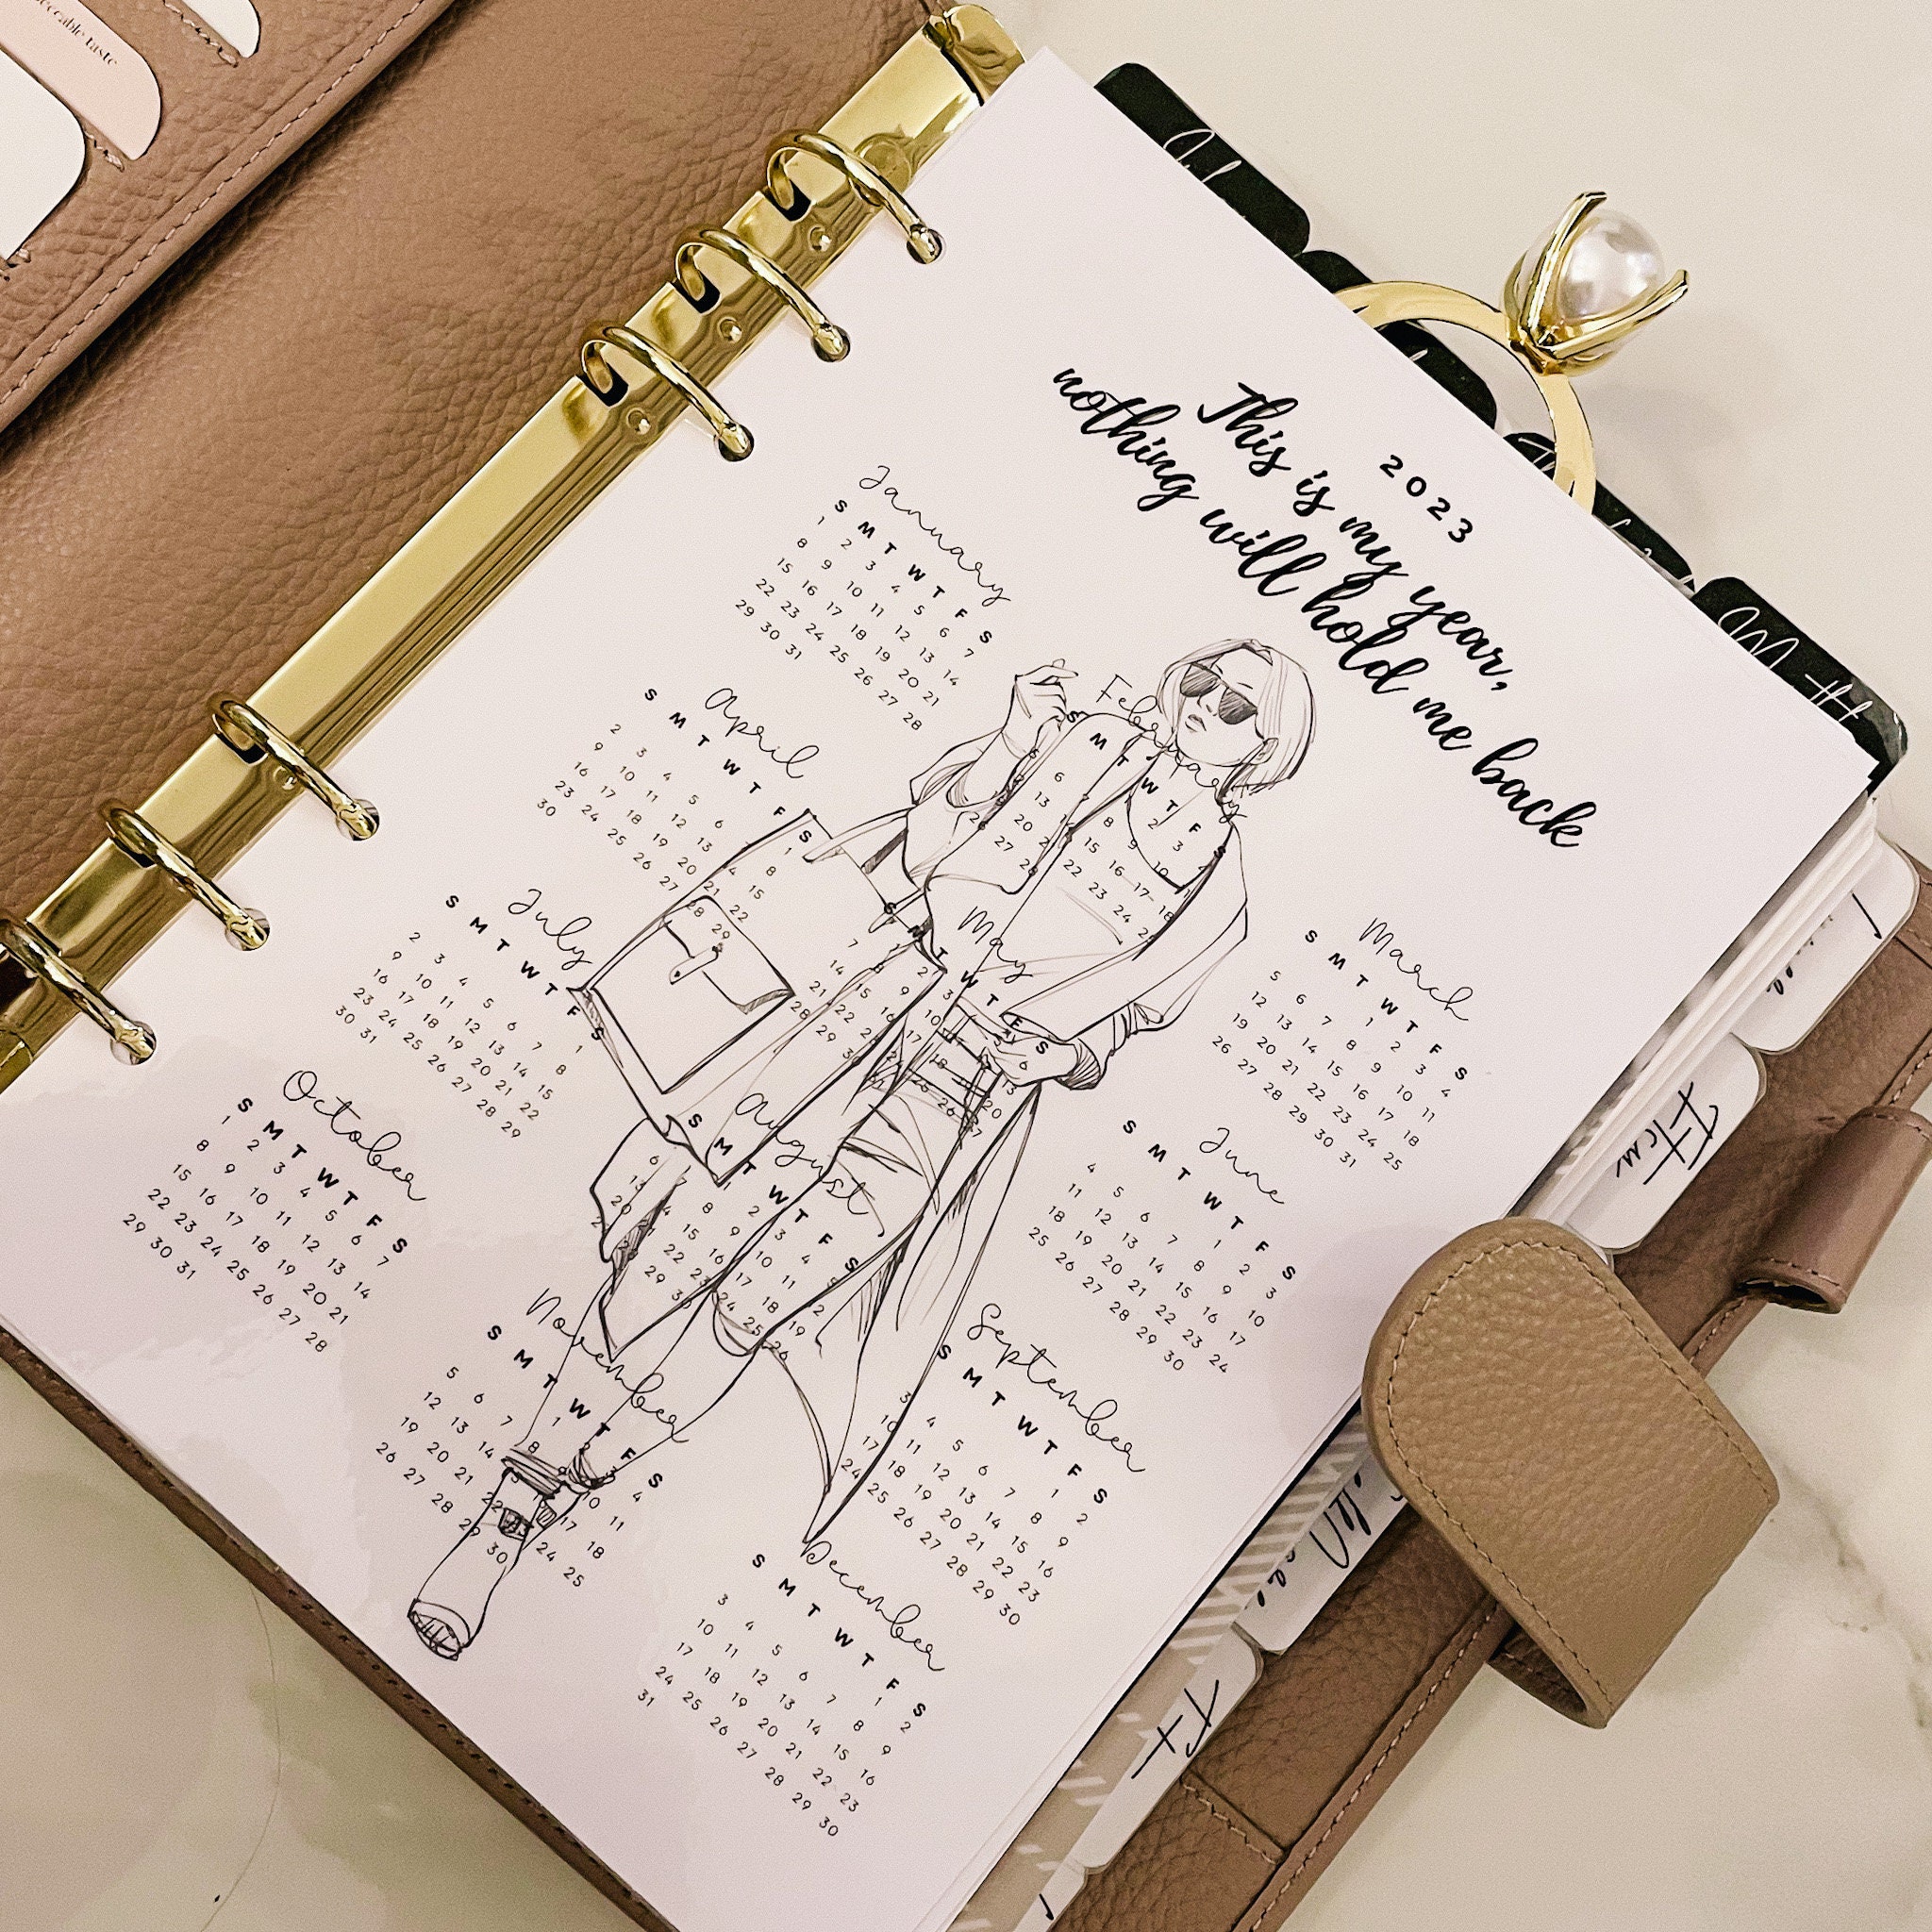 taste
2023
This is my year,
nothing will hold me back
January
S M T W T F S
1 2 3 4 5 6 7
8 9 10 11 12 13 14
15 16 17 18 19 20 21
22 23 24 25 26 27 28
29 30 31
February
S M T W T F S
2 3 4
5 6 7 8 9 10
13 15 16 17 18
20 22 23 24
26 27 28
March
S M T W T F S
1 2 3 4
5 6 7 8 9 10 11
12 13 14 15 16 17 18
19 20 21 22 23 24 25
26 27 28 29 30 31
April
S M T W T F S
1
2 3 4 5 6 7 8
9 10 11 12 13 14 15
16 17 18 19 20 21 22
23 24 25 26 27 28 29
30
May
S M T W T F S
2 3 6
7 8 9 10 13
14 15 16 17 18 20
21 22 25 26 27
28 29 30
June
S M T W T F S
1 2 3
4 5 6 7 8 9 10
11 12 13 14 15 16 17
18 19 20 21 22 23 24
25 26 27 28 29 30
July
S M T W T F S
1
2 3 4 5 6 7 8
9 10 11 12 13 14 15
16 17 18 19 20 21 22
23 24 25 26 27 28 29
30 31
August
S M T W T F S
1 2 3 4 5
6 7 8 9 10 11 12
13 14 15 16 17 18 19
20 21 22 23 24 25 26
28 29 30
September
S M T W T F S
1 2
3 4 5 6 7 8 9
10 11 12 13 14 15 16
17 18 19 20 21 22 23
24 25 26 27 28 29 30
October
S M T W T F S
1 2 3 4 5 6 7
8 9 10 11 12 13 14
15 16 17 18 19 20 21
22 23 24 25 26 27 28
29 30 31
November
S M T W T F S
1 2 3 4
5 6 7 8 9 10 11
12 13 14 15 17 18
19 20 21 22 24 25
26 27 28 29 30
December
S M T W T F S
1 2
3 4 5 6 7 8 9
10 11 12 13 14 15 16
17 18 19 20 21 22 23
24 25 26 27 28 29 30
31